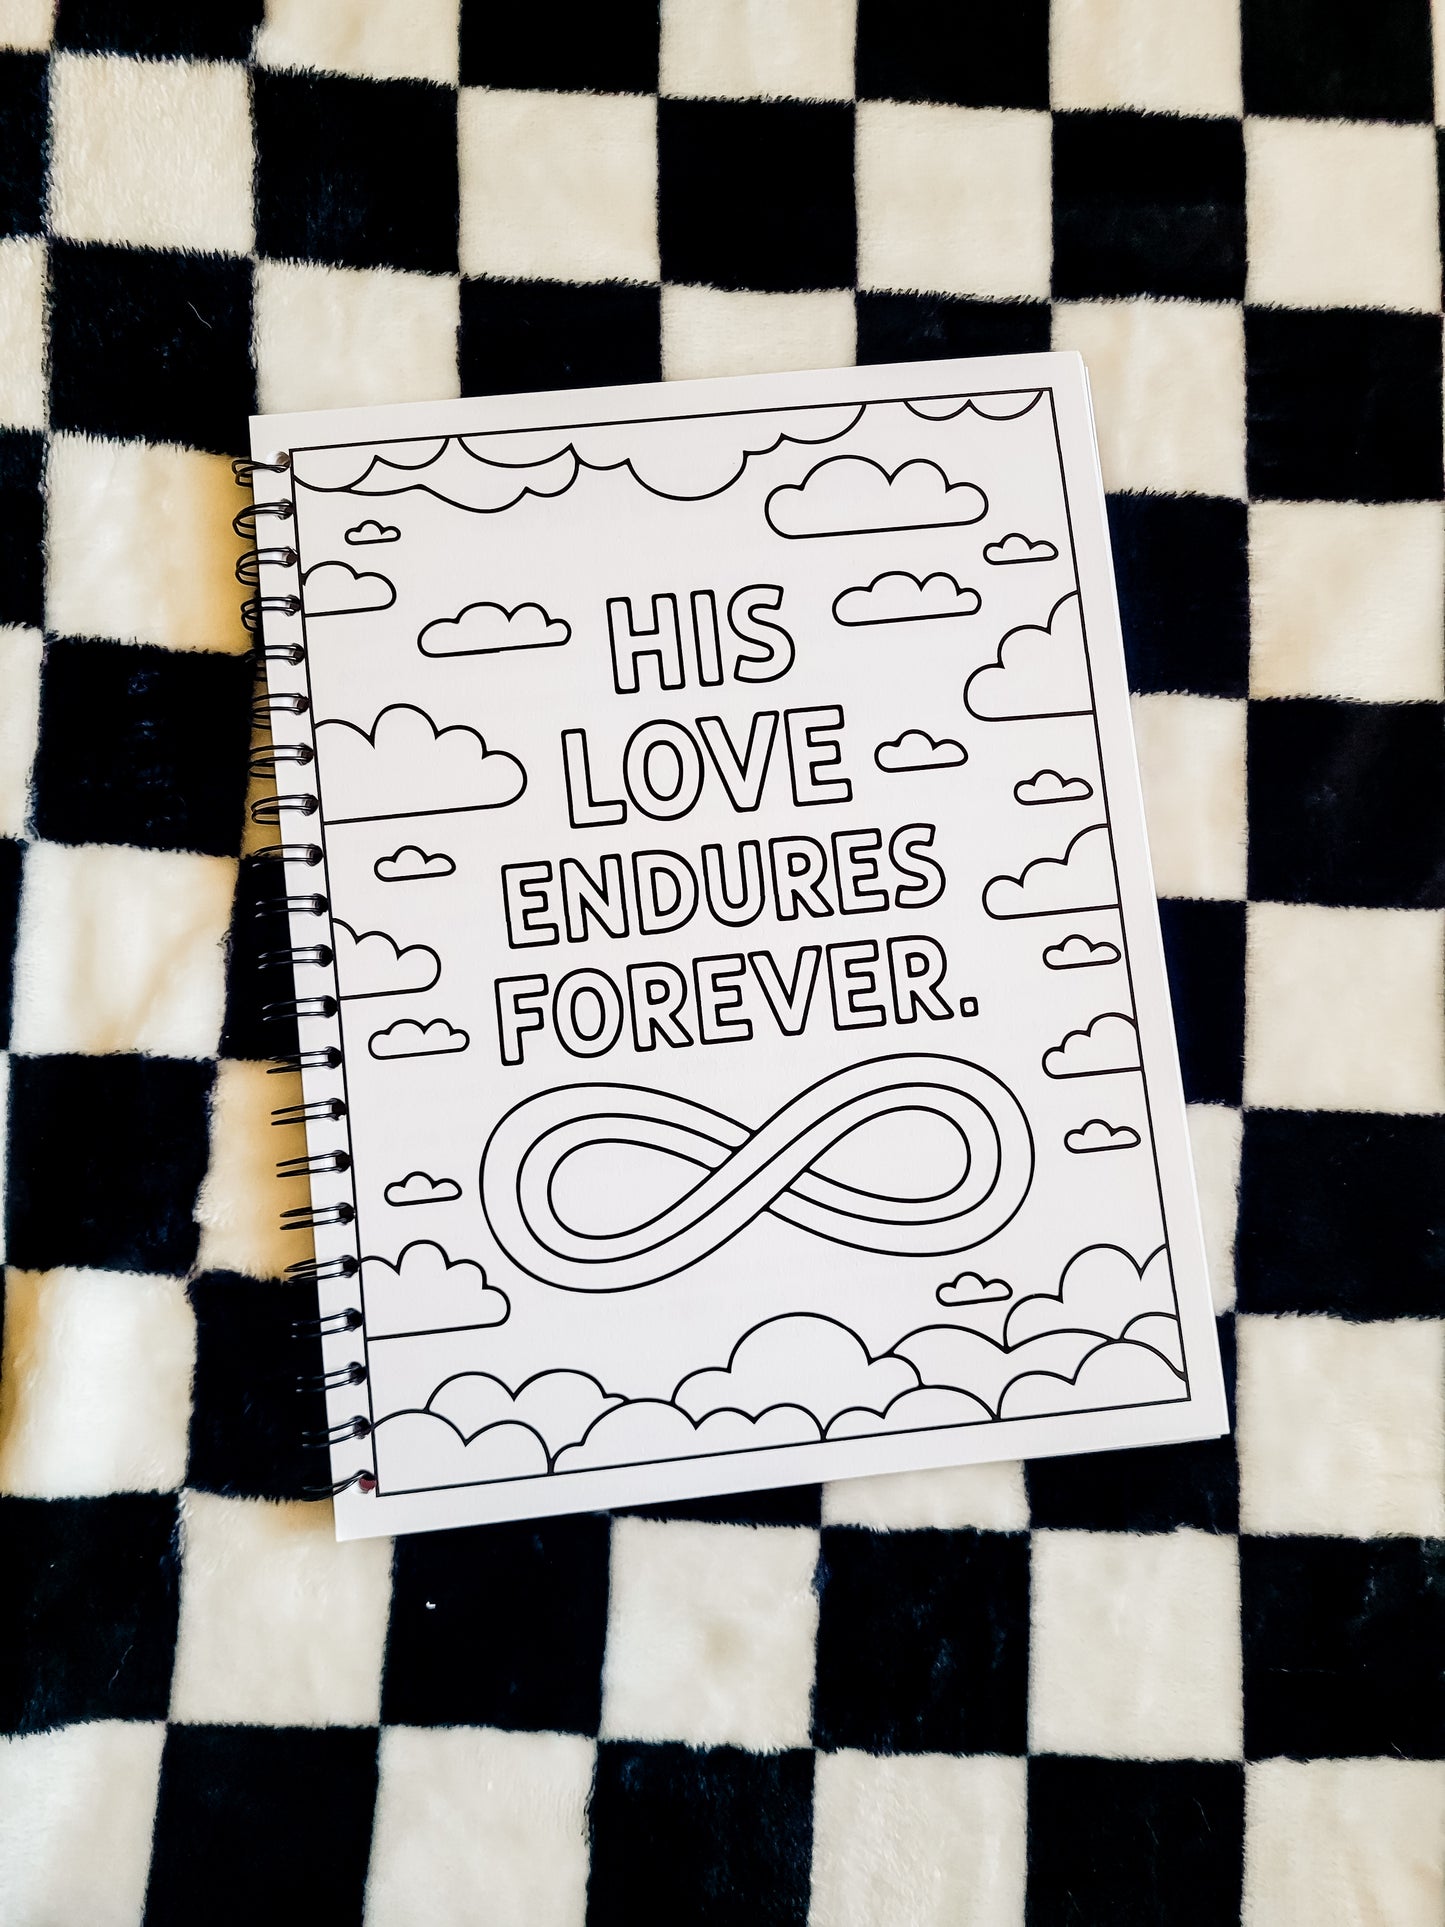 HIS
LOVE
ENDURES
FOREVER.